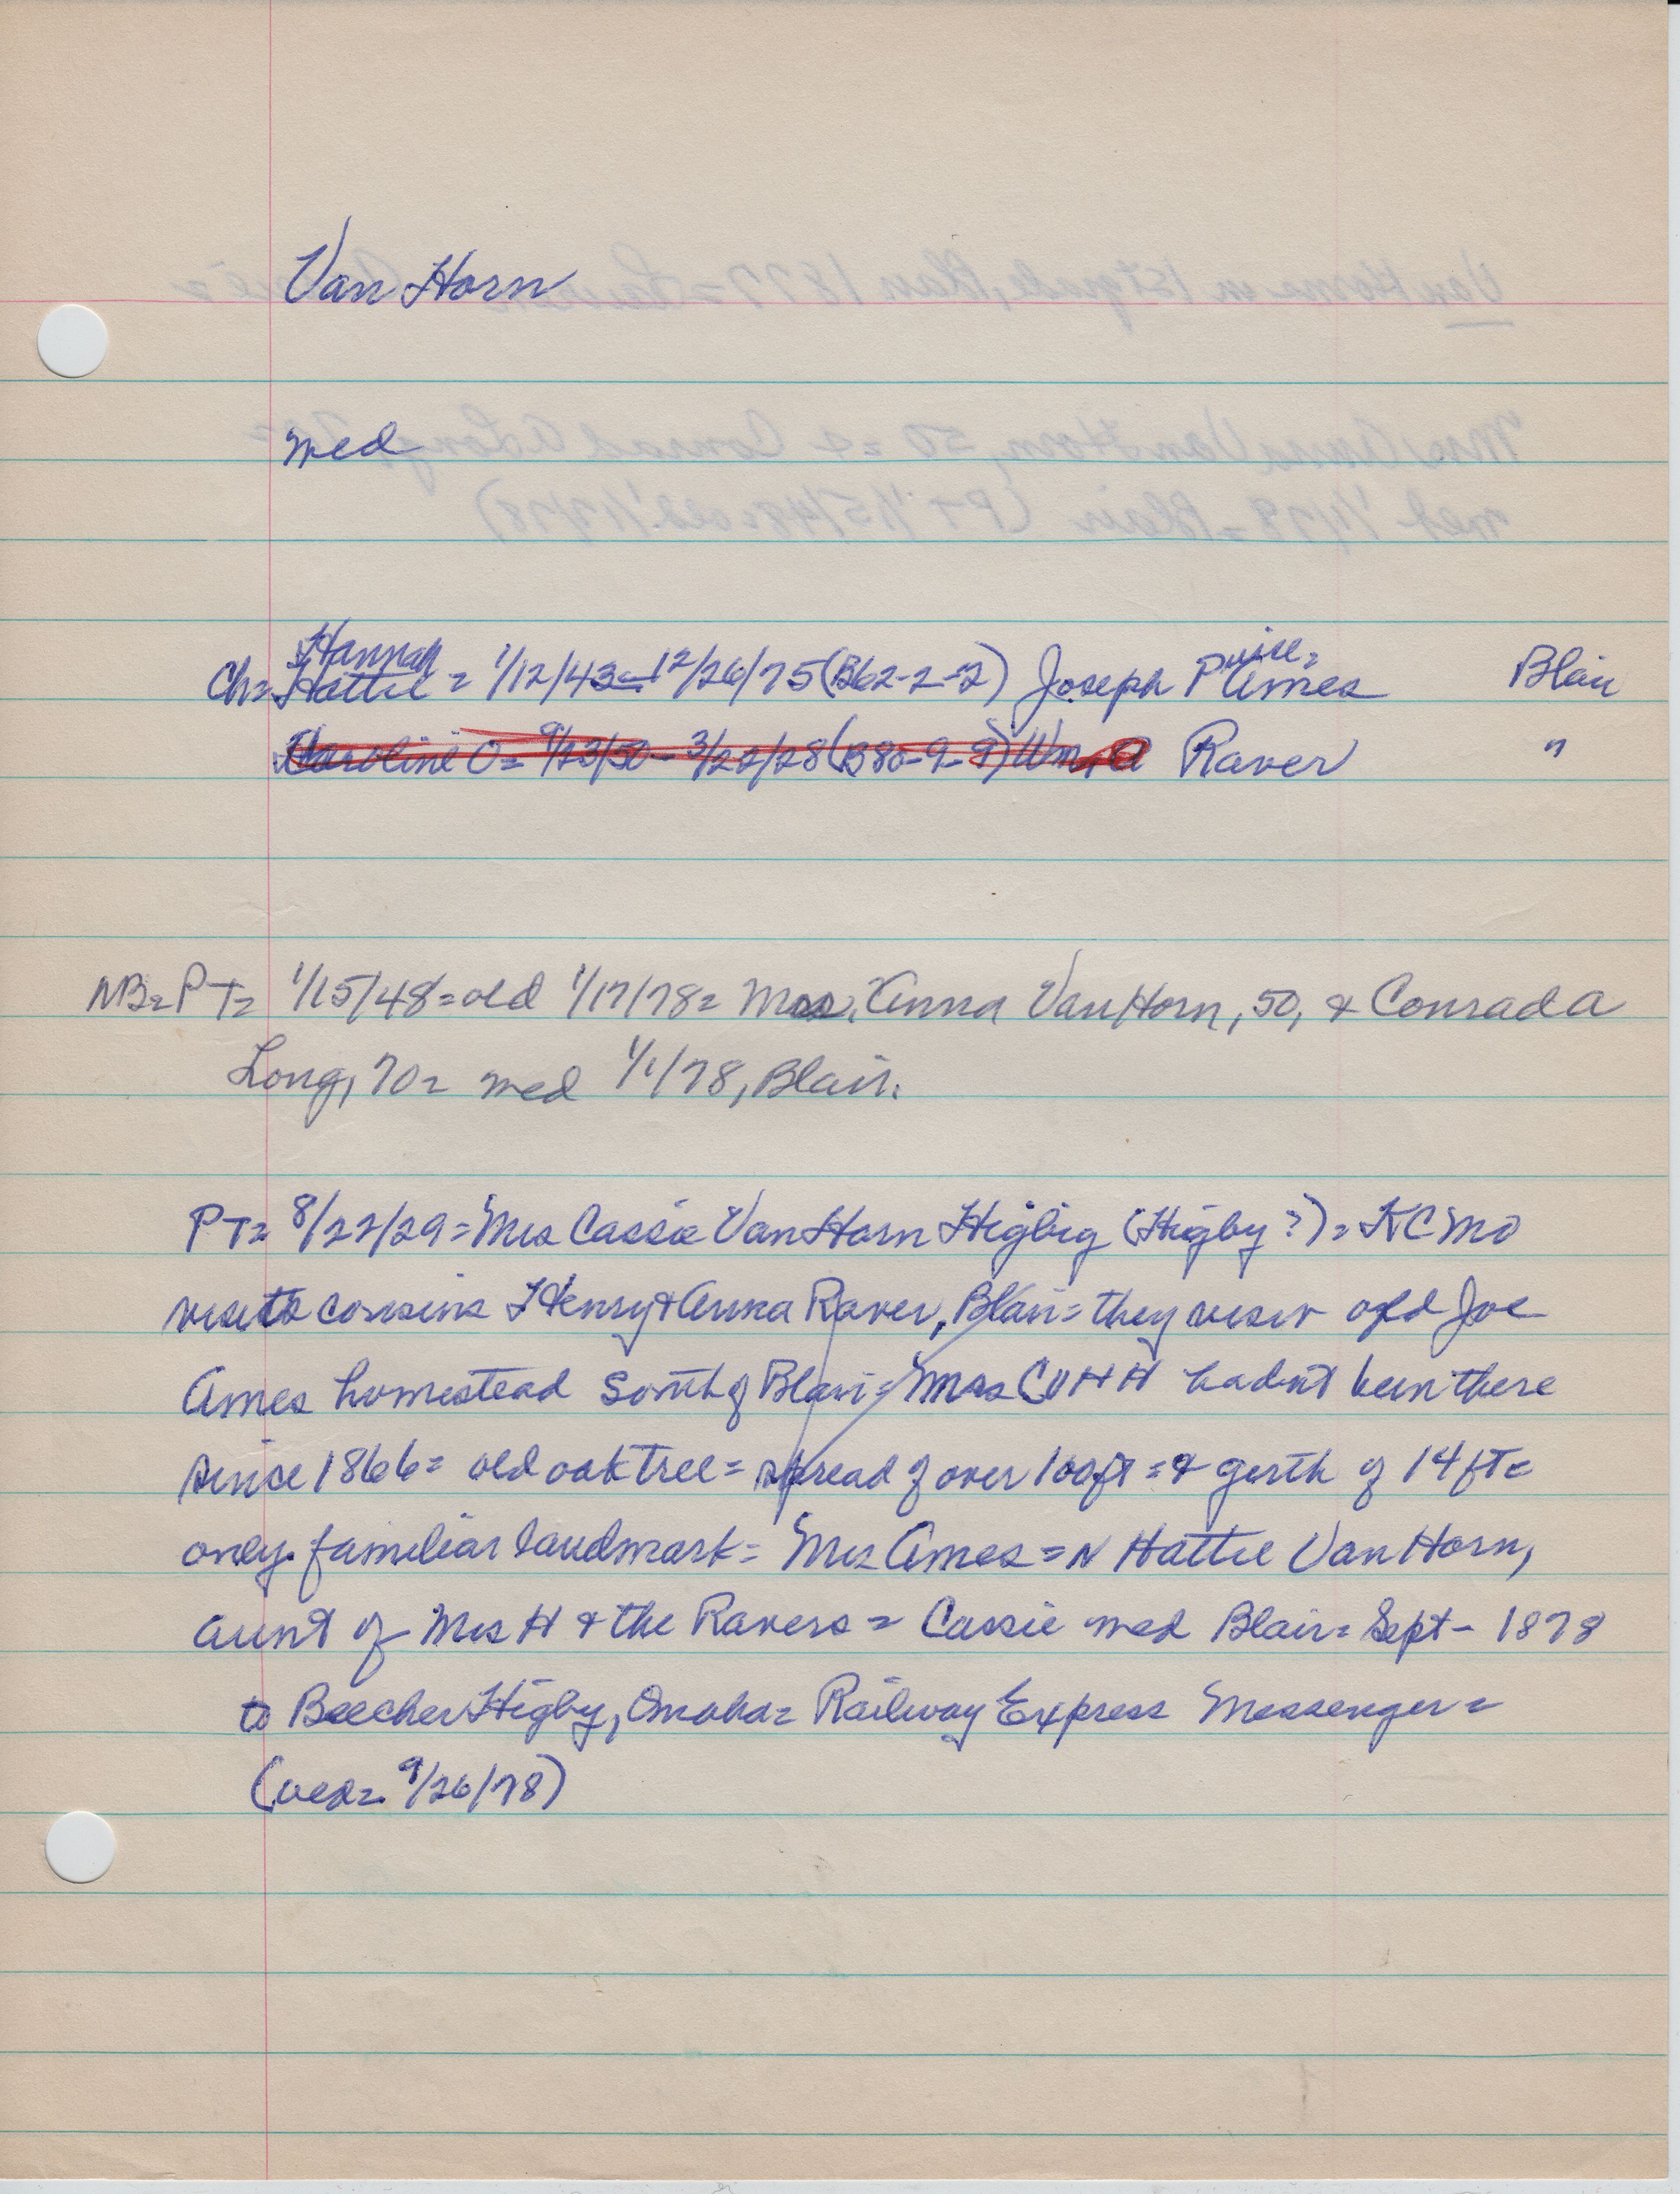 Van Horn
med
Hannah
Ch= Hattie = 1/12/43 - 12/26/75 (B62-2-2) Joseph P Ames Blair
Caroline O = 9/23/50 - 3/22/28 (B80-9-9) Wm A Raver "
NB= PT= 1/15/48 = old 1/17/78 = Mrs. Anna Van Horn, 50, & Conrad A
Long, 70 = med 1/1/78, Blair.
PT= 8/22/29 = Mrs Cassie Van Horn Higbig (Higby?) = KC Mo
visits cousins Henry & Anna Raver, Blair = they visit old Joe
Ames homestead South of Blair = Mrs C V H H hadn't been there
since 1866 = old oak tree = spread of over 100 ft = & girth of 14 ft =
only familiar landmark = Mrs Ames = N Hattie Van Horn,
aunt of Mrs H & the Ravers = Cassie med Blair = Sept - 1878
to Beecher Higby, Omaha = Railway Express Messenger =
9/26/78)